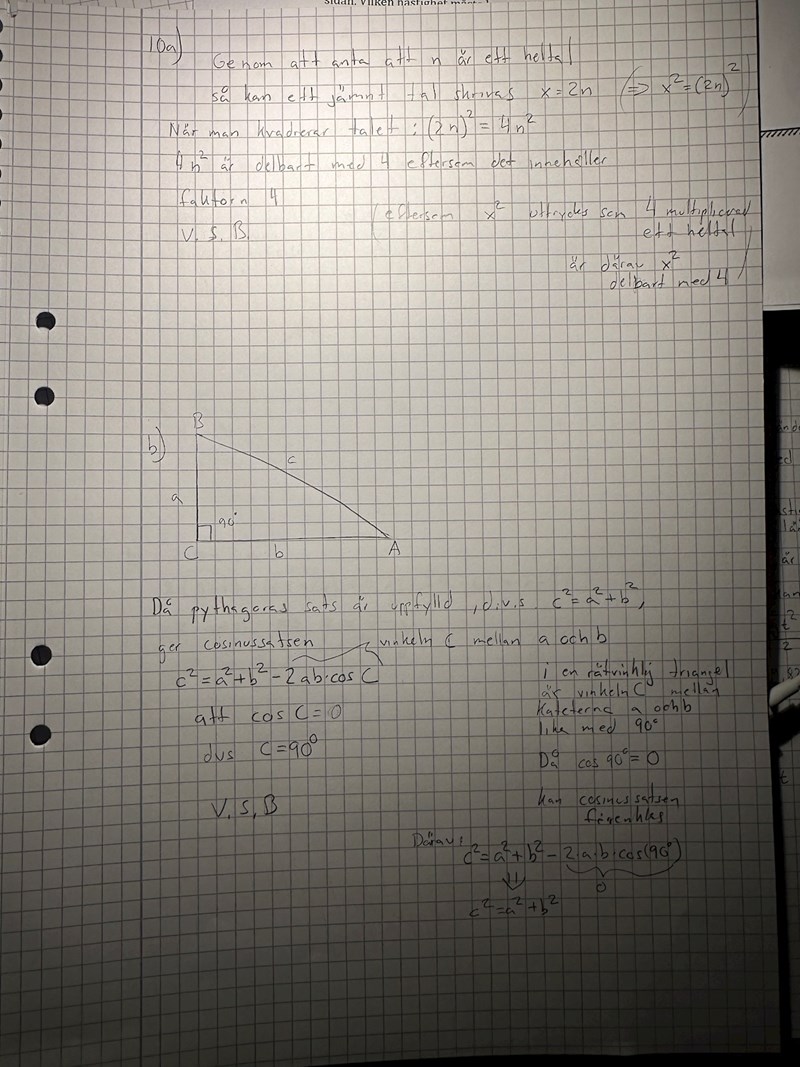 sidan. Vilken hastighet
10a)
Genom att anta att n är ett heltal
så kan ett jämnt tal skrivas x = 2n (⇒ x² = (2n)²)
När man kvadrerar talet : (2n)² = 4n²
4n² är delbart med 4 eftersom det innehåller
faktorn 4
V.S.B.
(eftersom x² uttrycks som 4 multiplicerad
ett heltal
är därav x²
delbart med 4)
b)
B
c
a
90°
C
b
A
Då pythagoras sats är uppfylld, d.v.s c² = a² + b²,
ger cosinussatsen vinkeln C mellan a och b
c² = a² + b² - 2ab·cos C
att cos C = 0
dvs C = 90°
V.S.B
i en rätvinklig triangel
är vinkeln C mellan
kateterna a och b
lika med 90°
Då cos 90° = 0
kan cosinussatsen
förenklas
Därav:
c² = a² + b² - 2·a·b·cos(90°)
0
⇓
c² = a² + b²